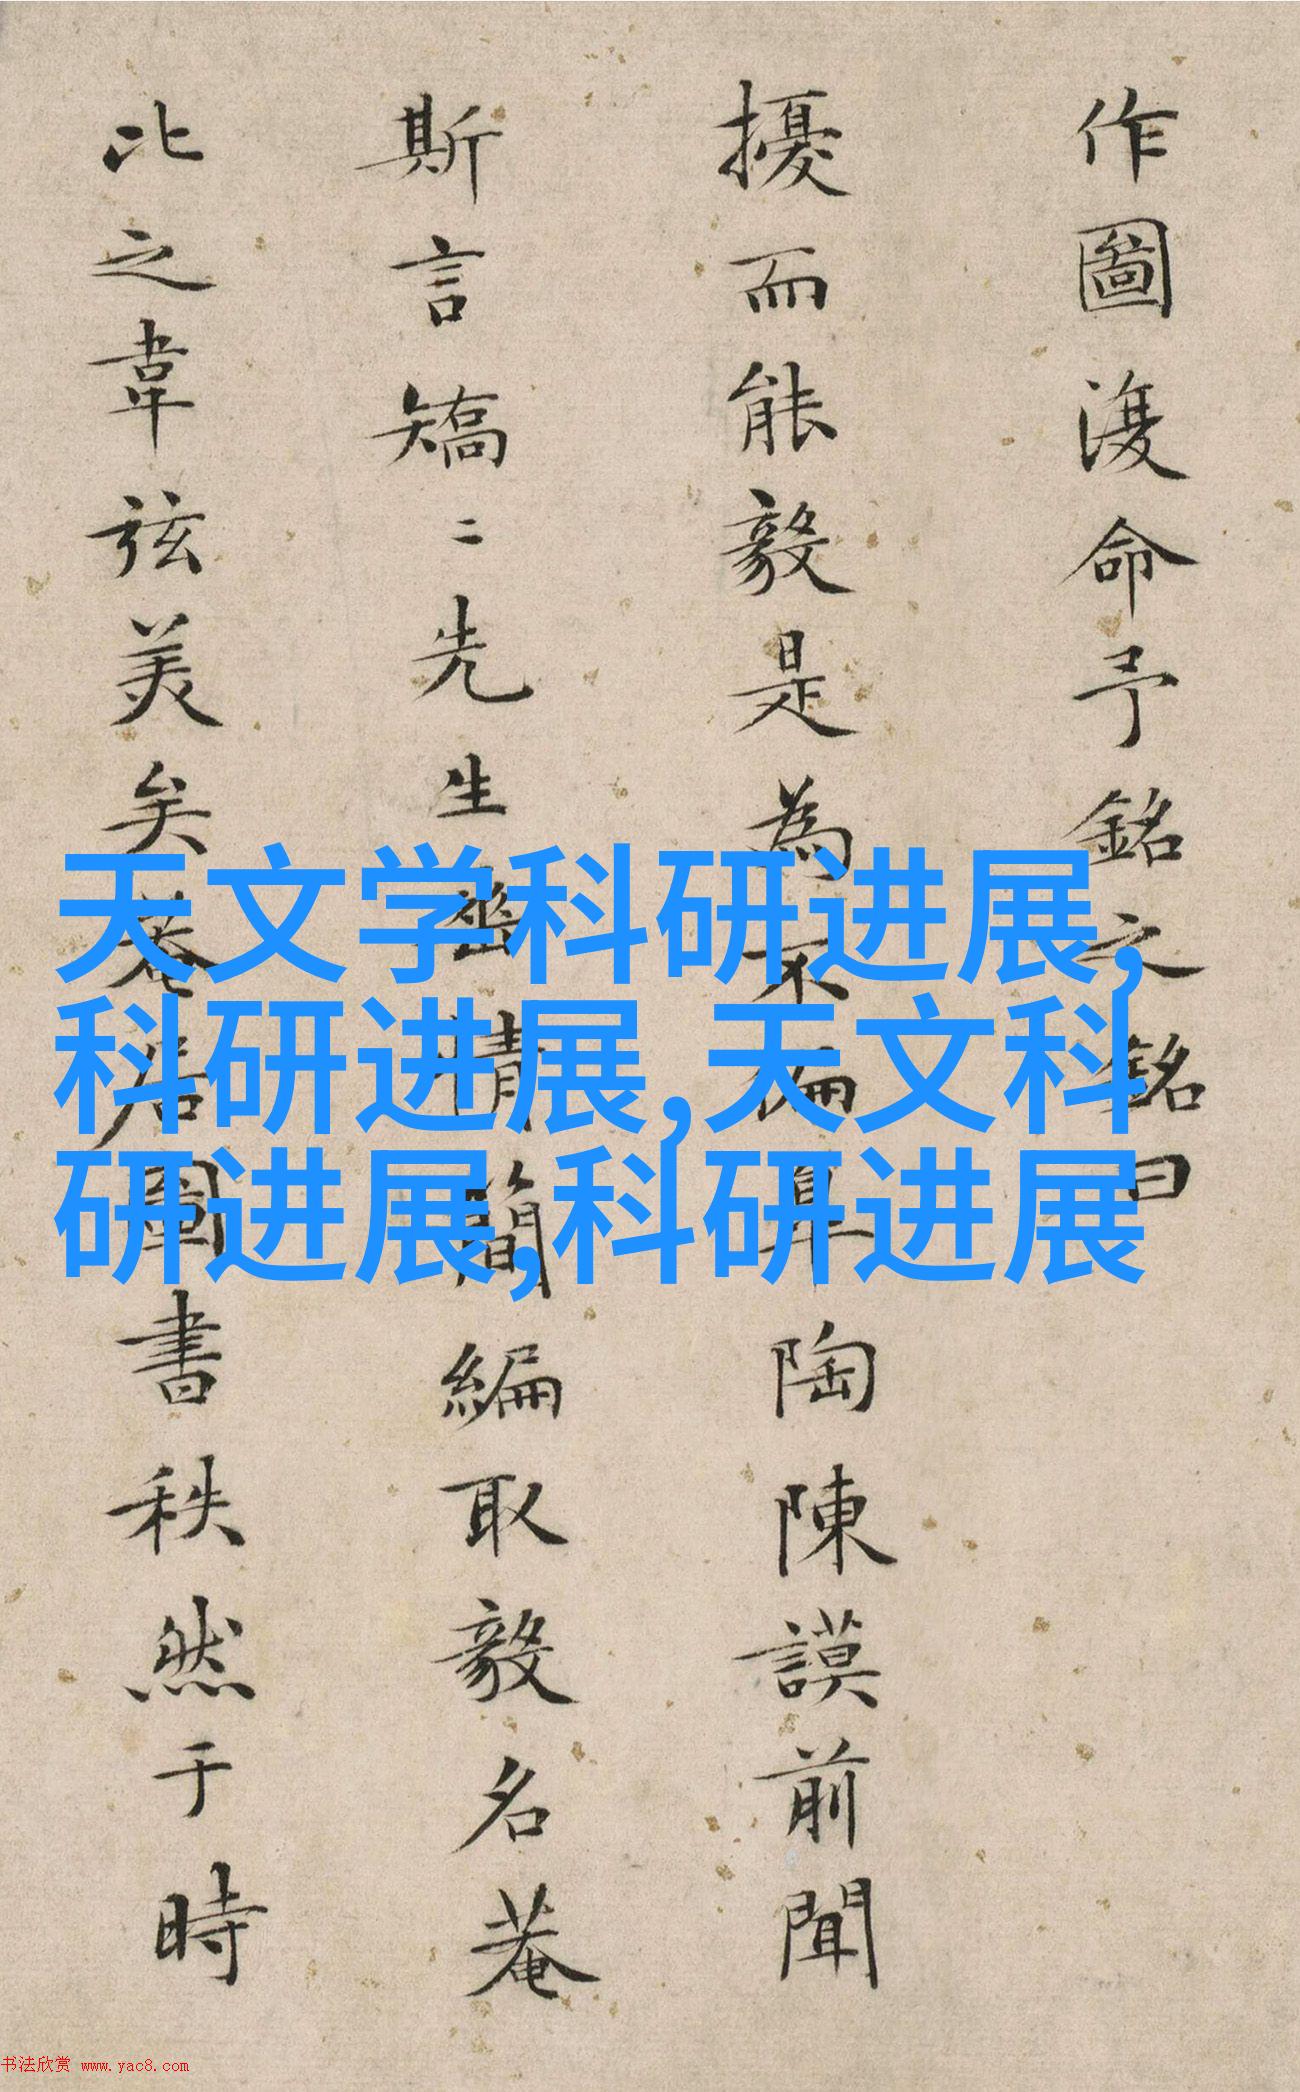 作圖復命予銘之銘曰
擾而能毅是為不偏皐陶陳謨前聞
斯言矯二先生齋情簡編取毅名菴
比之韋弦美矣菴居圖書秩然于時
天文学科研进展,
科研进展,天文科
研进展,科研进展
书法欣赏 www.yac8.com